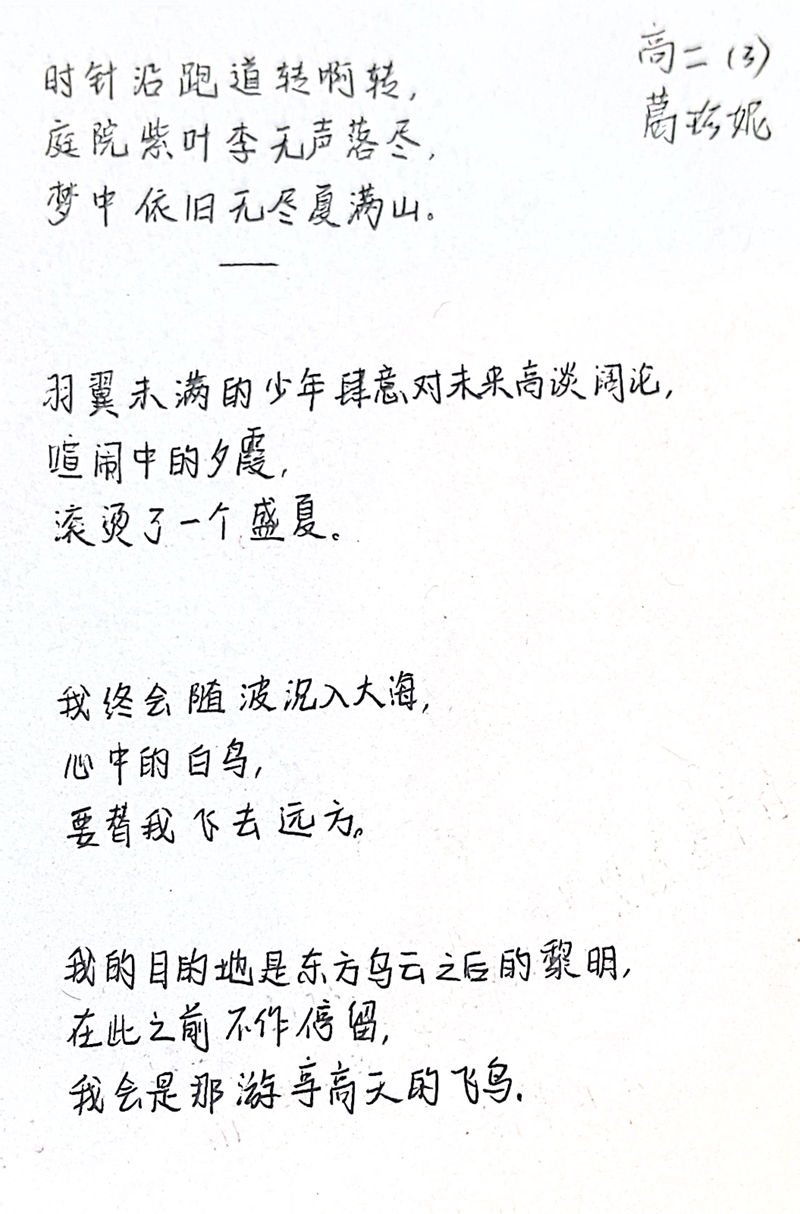 高二(3)
葛珍妮
时针沿跑道转啊转,
庭院紫叶李无声落尽,
梦中依旧无尽夏满山。
羽翼未满的少年肆意对未来高谈阔论,
喧闹中的夕霞,
滚烫了一个盛夏。
我终会随波沉入大海,
心中的白鸟,
要替我飞去远方。
我的目的地是东方乌云之后的黎明,
在此之前不作停留,
我会是那游享高天的飞鸟.